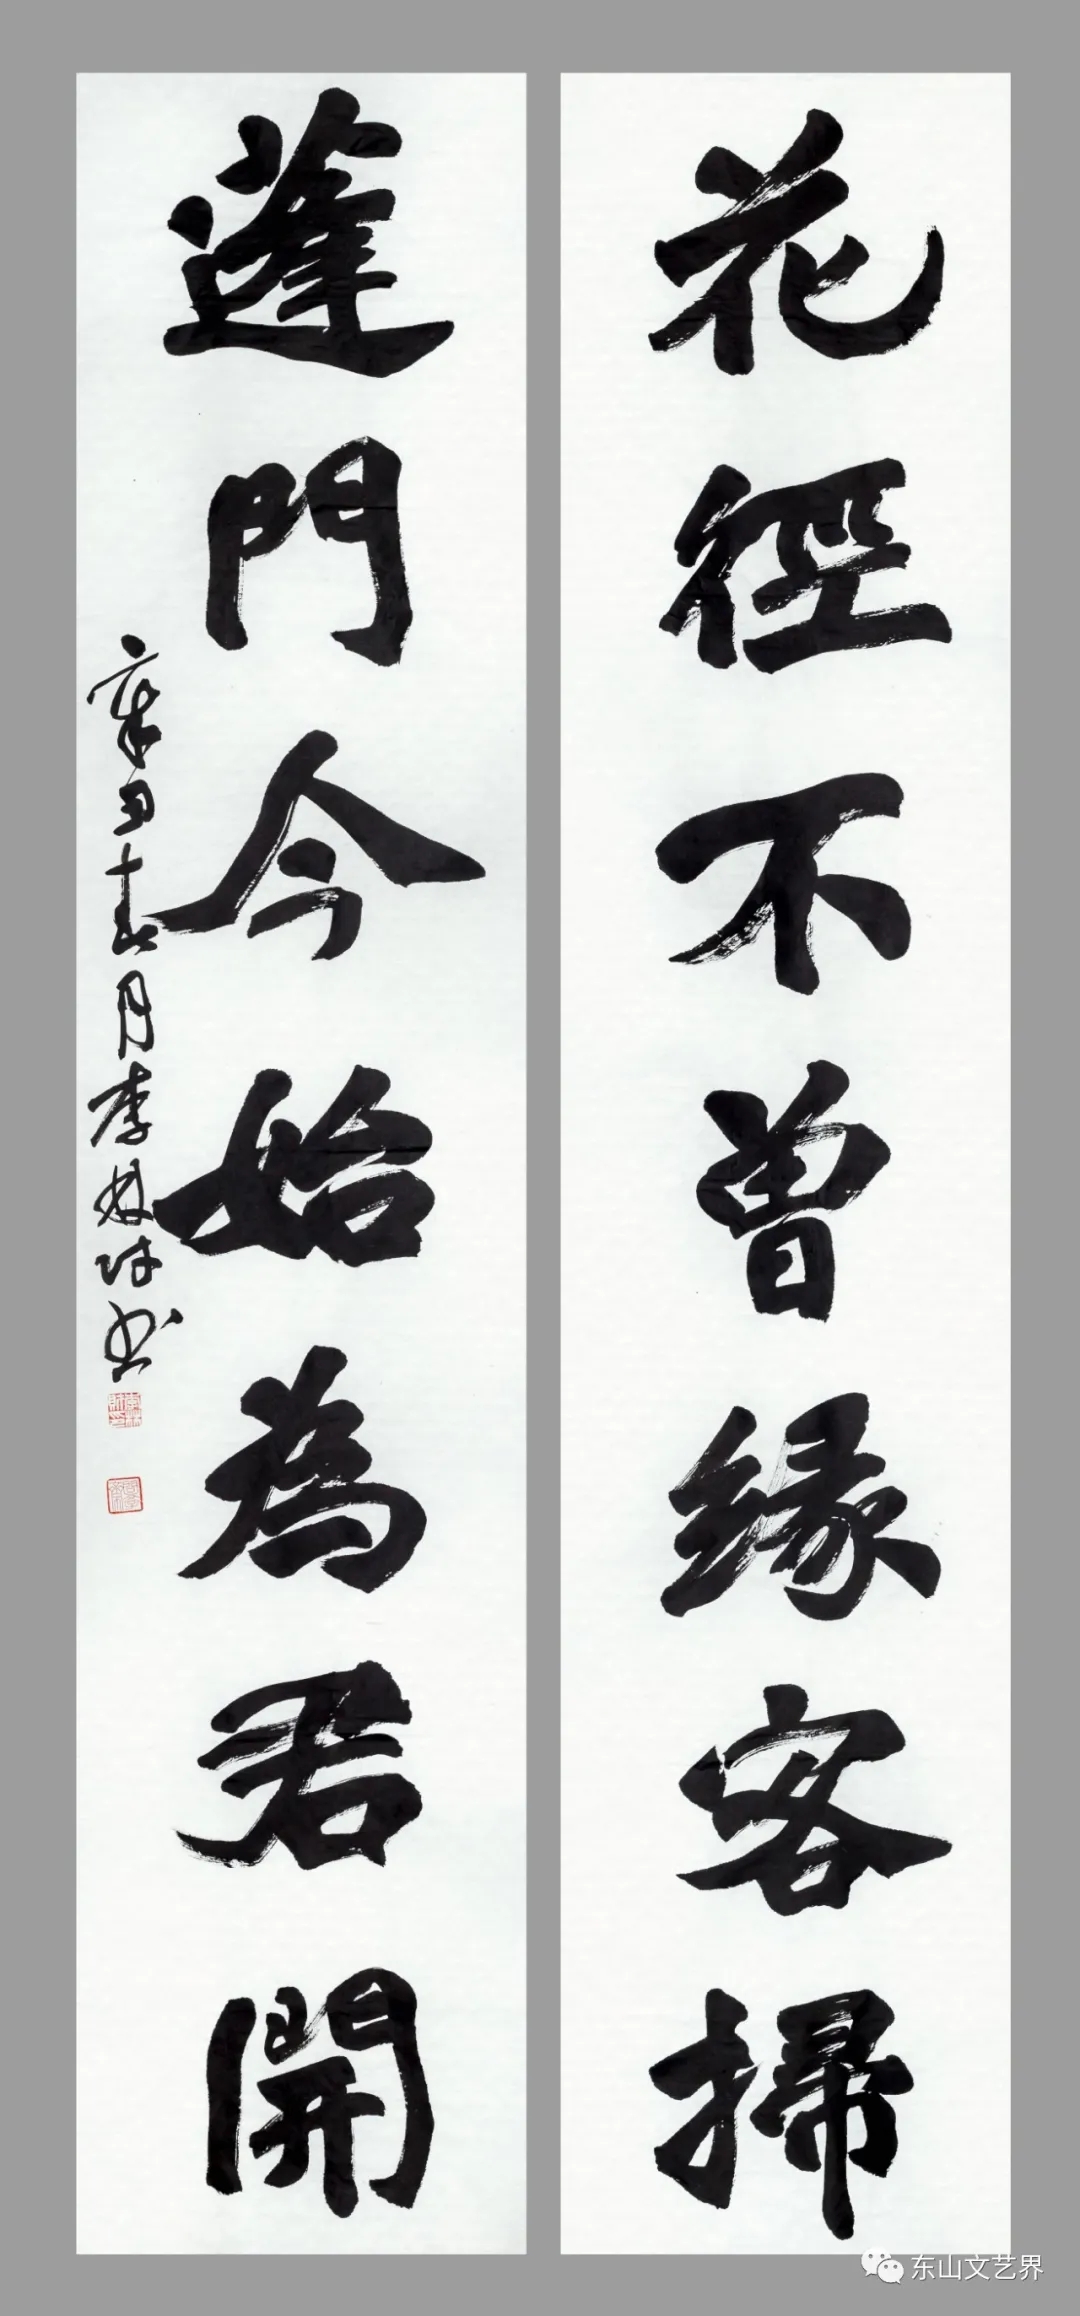 花徑不曾緣客掃
蓬門今始為君開
辛丑春月李林财书
东山文艺界